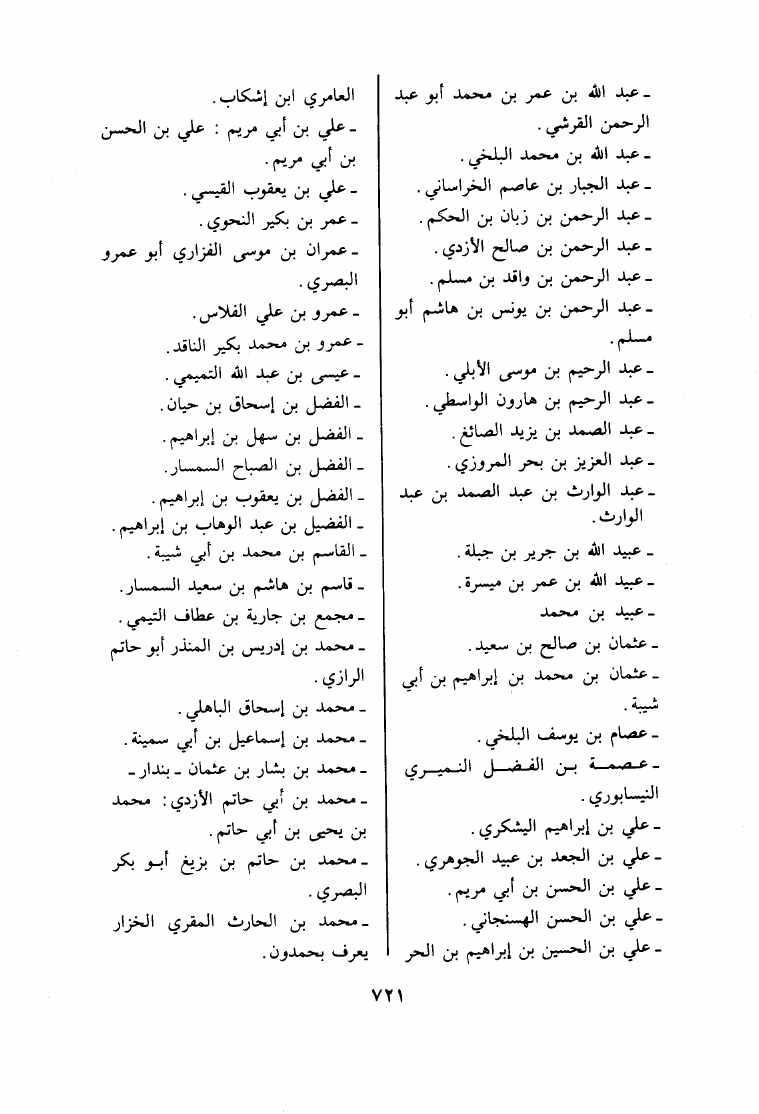 ـ عبد الله بن عمر بن محمد أبو عبد
الرحمن القرشي.
ـ عبد الله بن محمد البلخي.
ـ عبد الجبار بن عاصم الخراساني.
ـ عبد الرحمن بن زبان بن الحكم.
ـ عبد الرحمن بن صالح الأزدي.
ـ عبد الرحمن بن واقد بن مسلم.
ـ عبد الرحمن بن يونس بن هاشم أبو
مسلم.
ـ عبد الرحيم بن موسى الأبلي.
ـ عبد الرحيم بن هارون الواسطي.
ـ عبد الصمد بن يزيد الصائغ.
ـ عبد العزيز بن بحر المروزي.
ـ عبد الوارث بن عبد الصمد بن عبد
الوارث.
ـ عبيد الله بن جرير بن جبلة.
ـ عبيد الله بن عمر بن ميسرة.
ـ عبيد بن محمد
ـ عثمان بن صالح بن سعيد.
ـ عثمان بن محمد بن إبراهيم بن أبي
شيبة.
ـ عصام بن يوسف البلخي.
ـ عصمة بن الفضل النميري
النيسابوري.
ـ علي بن إبراهيم اليشكري.
ـ علي بن الجعد بن عبيد الجوهري.
ـ علي بن الحسن بن أبي مريم.
ـ علي بن الحسن الهسنجاني.
ـ علي بن الحسين بن إبراهيم بن الحر
العامري ابن إشكاب.
ـ علي بن أبي مريم : علي بن الحسن
بن أبي مريم.
ـ علي بن يعقوب القيسي.
ـ عمر بن بكير النحوي.
ـ عمران بن موسى الفزاري أبو عمرو
البصري.
ـ عمرو بن علي الفلاس.
ـ عمرو بن محمد بكير الناقد.
ـ عيسى بن عبد الله التميمي.
ـ الفضل بن إسحاق بن حيان.
ـ الفضل بن سهل بن إبراهيم.
ـ الفضل بن الصباح السمسار.
ـ الفضل بن يعقوب بن إبراهيم.
ـ الفضيل بن عبد الوهاب بن إبراهيم.
ـ القاسم بن محمد بن أبي شيبة.
ـ قاسم بن هاشم بن سعيد السمسار.
ـ مجمع بن جارية بن عطاف التيمي.
ـ محمد بن إدريس بن المنذر أبو حاتم
الرازي.
ـ محمد بن إسحاق الباهلي.
ـ محمد بن إسماعيل بن أبي سمينة.
ـ محمد بن بشار بن عثمان ـ بندار ـ
ـ محمد بن أبي حاتم الأزدي : محمد
بن يحيى بن أبي حاتم.
ـ محمد بن حاتم بن بزيغ أبو بكر
البصري.
ـ محمد بن الحارث المقري الخزار
يعرف بحمدون.
٧٢١